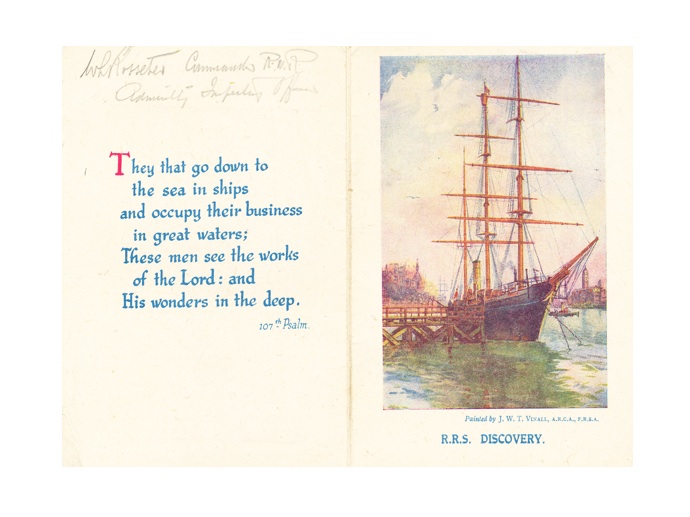 Commander R.N.R
Admiralty
They that go down to
the sea in ships
and occupy their business
in great waters;
These men see the works
of the Lord: and
His wonders in the deep.
107th Psalm.
Painted by J. W. T. Vinall, A.R.C.A., F.R.S.A.
R.R.S. DISCOVERY.